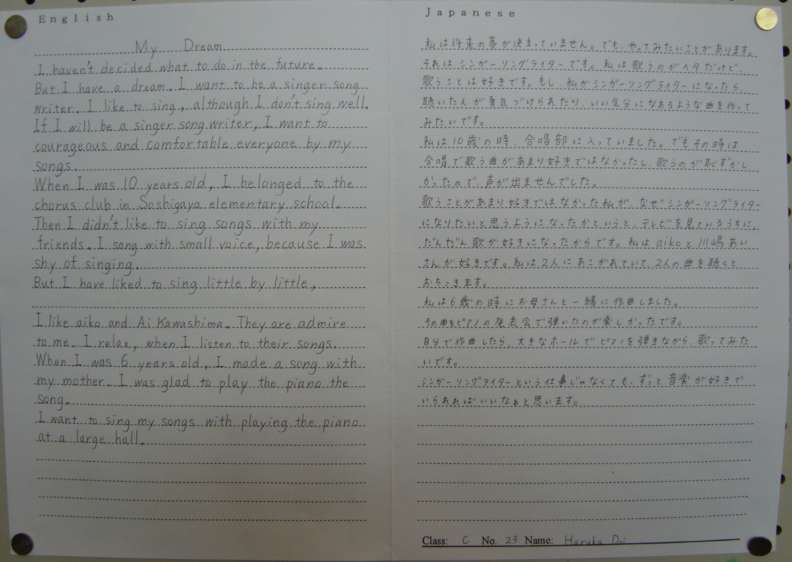 English
My Dream
I haven't decided what to do in the future.
But I have a dream. I want to be a singer song
writer. I like to sing, although I don't sing well.
If I will be a singer song writer, I want to
courageous and comfortable everyone by my
songs.
When I was 10 years old, I belonged to the
chorus club in Soshigaya elementary school.
Then I didn't like to sing songs with my
friends. I song with small voice, because I was
shy of singing.
But I have liked to sing little by little,
I like aiko and Ai Kawashima. They are admire
to me. I relax, when I listen to their songs.
When I was 6 years old, I made a song with
my mother. I was glad to play the piano the
song.
I want to sing my songs with playing the piano
at a large hall.
Japanese
私は将来の夢が決まっていません。でも、やってみたいことがあります。
それは シンガーソングライターです。私は歌うのが 下手だけど、
歌うことは好きです。もし、私がシンガーソングライターになったら
聴いた人が 勇気づけられたり、いい気分になれるような曲を作って
みたいです。
私は10歳の時、合唱部に入っていました。でもその時は
合唱で歌う曲があまり好きではなかったし、歌うのが恥ずかし
かったので、声が出ませんでした。
歌うことがあまり好きではなかった私が、なぜシンガーソングライター
になりたいと思うようになったかというと、テレビを見ているうちに、
だんだん歌が好きになったからです。私はaikoと川嶋あい
さんが好きです。私は2人にあこがれていて、2人の曲を聴くと
おちつきます。
私は6歳の時にお母さんと一緒に作曲しました。
その曲をピアノの発表会で弾いたのが楽しかったです。
自分で作曲したら、大きなホールでピアノを弾きながら、歌ってみた
いです。
シンガーソングライターという仕事じゃなくても、ずっと音楽が好きで
いられればいいなぁと思います。
Class: C No. 23 Name: Haruka Doi